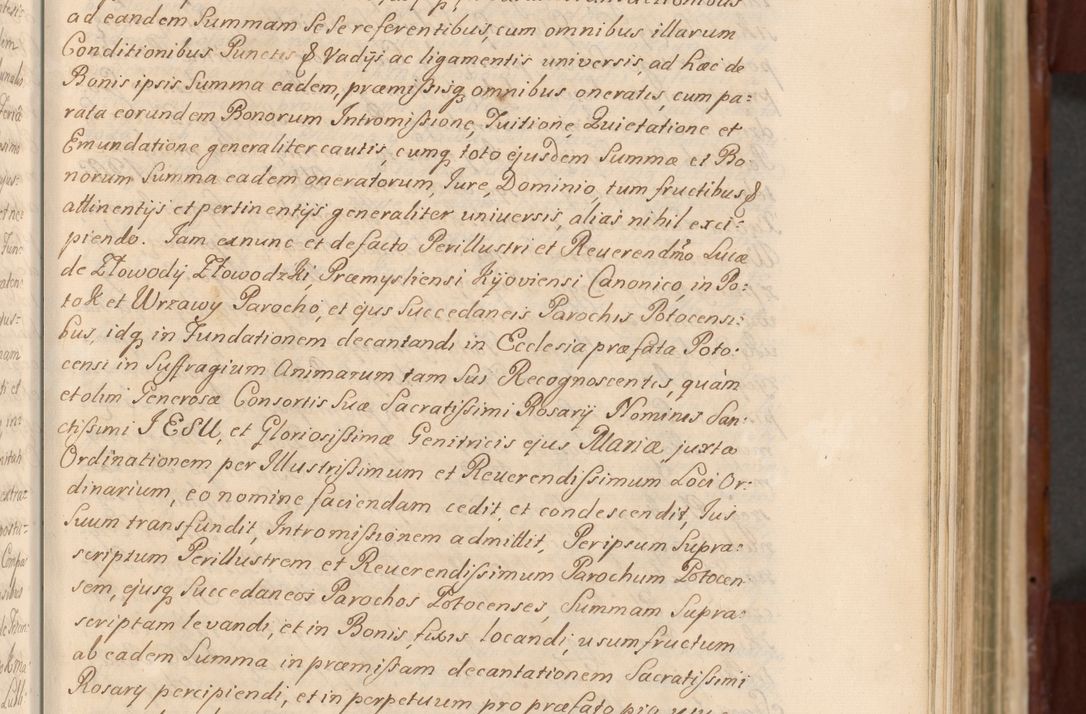 ad eandem Summam Se Se referentibus, cum omnibus illarum
Conditionibus Punctis & Vadÿs ac ligamentis universis, ad hæc de
Bonis ipsis Summa eadem, præmißisq, omnibus oneratis, cum pa:
rata eorundem Bonorum Intromißione, Tuitione, Quietatione et
Emundatione generaliter cautis, cumq, toto ejusdem Summæ et Bo
norum Summa eadem oneratorum, Iure, Dominio, tum fructibus &
attinentÿs et pertinentÿs generaliter universis, alias nihil exci:
piendo. Iam exnunc et de facto Perillustri et Reuerendmo Lucæ
de Złowody Złowodzki, Præmysliensi Kÿoviensi Canonico, in Po:
tok et Wrzawy Parocho, et ejus Succedaneis Parochis Potocensi:
bus, idq, in Fundationem decantandi in Ecclesia præfata Poto:
censi in Suffragium Animarum tam Sui Recognoscentis, quàm
et olim Generosæ Consortis Suæ Sacratißimi Rosarÿ Nominis San
ctissimi IESU, et Gloriosißimæ Genitricis ejus Mariæ juxta
Ordinationem per Illustrißimum et Reuerendißimum Loci Or:
dinarium, eo nomine faciendam cedit, et condescendit, Ius
Suum transfundit, Intromißionem admittit, Per ipsum Supra:
scriptum Perillustrem et Reuerendißimum Parochum Potocen
sem, ejusq, Succedaneos Parochos Potocenses, Summam Supra:
scriptam levandi, et in Bonis, fixis locandi, usumfructum
ab eadem Summa in præmißam decantationem Sacratißimi
Rosarÿ percipiendi, et in perpetuum pro præfato pio